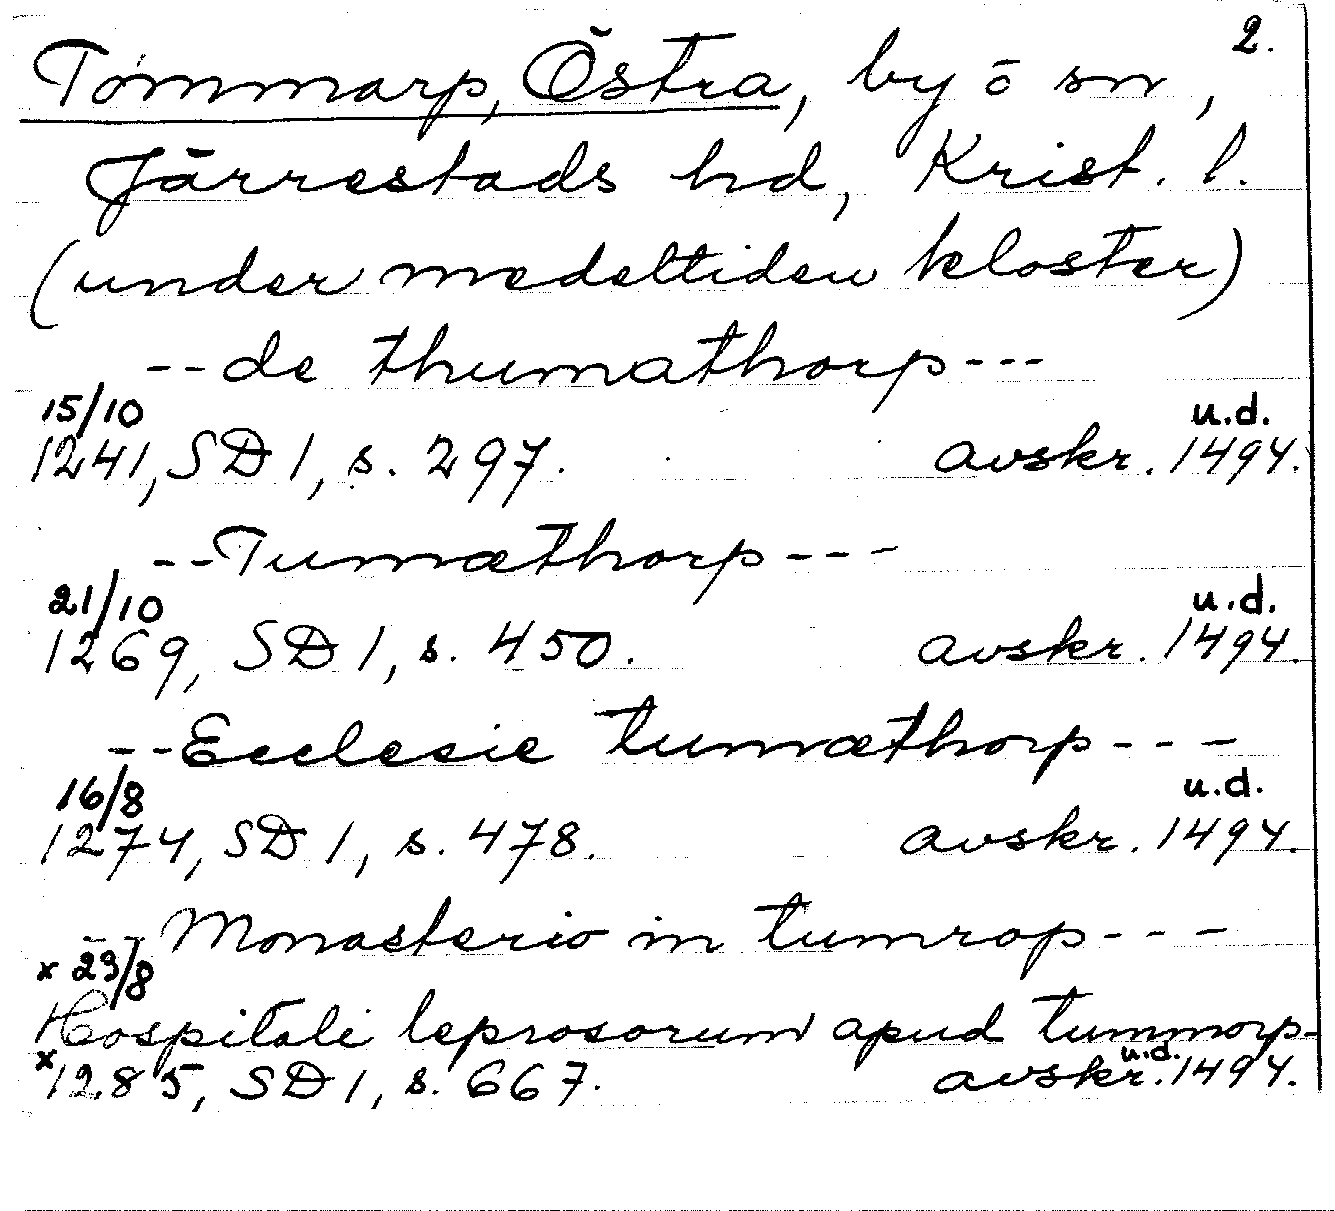 2.
Tömmarp, Östra, by ō sn,
Järrestads hd, Krist. l.
(under medeltiden kloster)
--de thumathorp---
15/10 u.d.
1241, SD 1, s. 297. avskr. 1494.
--Tumæthorp---
21/10 u.d.
1269, SD 1, s. 450. avskr. 1494.
--Ecclesie tumæthorp---
16/8 u.d.
1274, SD 1, s. 478. avskr. 1494.
--Monasterio in tumrop---
x 23/8
Hospitali leprosorum apud tummorp-
x 1285, SD 1, s. 667. u.d. avskr. 1494.